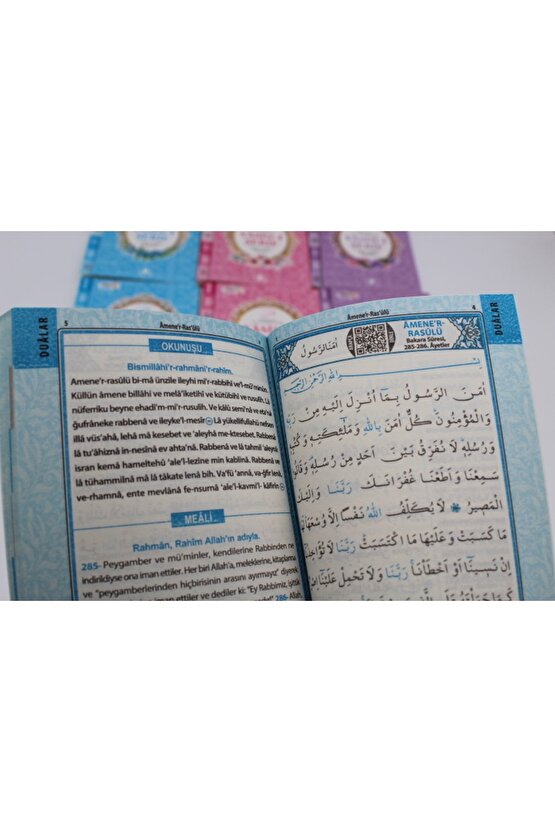 DUÂLAR
5
Âmene'r-Ras'ülü
OKUNUŞU
Bismillâhi'r-rahmâni'r-rahîm.
Amene'r-rasûlü bi-mâ ünzile ileyhi mi'r-rabbihî ve'l-mü'minûn.
Küllün âmene billâhi ve melâ'iketihî ve kütübihî ve rusulih. Lâ
nüferriku beyne ehadi'm-mi'r-rusulih. Ve kâlû semi'nâ ve eta'nâ
ğufrâneke rabbenâ ve ileyke'l-mesîr Lâ yükellifullahü nefsen
illâ vüs'ahâ, lehâ mâ kesebet ve 'aleyhâ me-ktesebet. Rabbenâ
lâ tu'âhiznâ in-nesînâ ev ahta'nâ. Rabbenâ ve lâ tahmil 'aleynâ
isran kemâ hameltehû 'ale'l-lezîne min kablinâ. Rabbenâ ve lâ
tühammilnâ mâ lâ tâkate lenâ bih. Va'fü 'annâ, va-ğfir lenâ,
ve-rhamnâ, ente mevlânâ fe-nsurnâ 'ale'l-kavmi'l- kâfirîn
MEÂLİ
Rahmân, Rahîm Allah'ın adıyla.
285- Peygamber ve mü'minler, kendilerine Rabbinden ne
indirildiyse ona iman ettiler. Her biri Allah'a, meleklerine, kitaplarına
ve "peygamberlerinden hiçbirisinin arasını ayırmayız" diyerek
iman ettiler ve dediler ki: "Ey Rabbimiz, işittik
286- Allah,
4
Âmene'r-Ras'ülü
DUÂLAR
ÂMENE'R-
RASÛLÜ
Bakara Sûresi,
285-286. Âyetler
اٰمَنَ الرَّسُولُ
بِسْمِ اللّٰهِ الرَّحْمٰنِ الرَّحِيمِ
اٰمَنَ الرَّسُولُ بِمَٓا اُنْزِلَ اِلَيْهِ مِنْ رَبِّهِ
وَالْمُؤْمِنُونَ كُلٌّ اٰمَنَ بِاللّٰهِ وَمَلٰٓئِكَتِهِ وَكُتُبِهِ
وَرُسُلِهِ لَا نُفَرِّقُ بَيْنَ اَحَدٍ مِنْ رُسُلِهِ وَقَالُوا
سَمِعْنَا وَاَطَعْنَا غُفْرَانَكَ رَبَّنَا وَاِلَيْكَ
الْمَصِيرُ لَا يُكَلِّفُ اللّٰهُ نَفْسًا اِلَّا وُسْعَهَا
مَا كَسَبَتْ وَعَلَيْهَا مَا اكْتَسَبَتْ رَبَّنَا لَا تُؤَاخِذْنَٓا
اِنْ نَسِينَٓا اَوْ اَخْطَأْنَا رَبَّنَا وَلَا تَحْمِلْ عَلَيْنَٓا